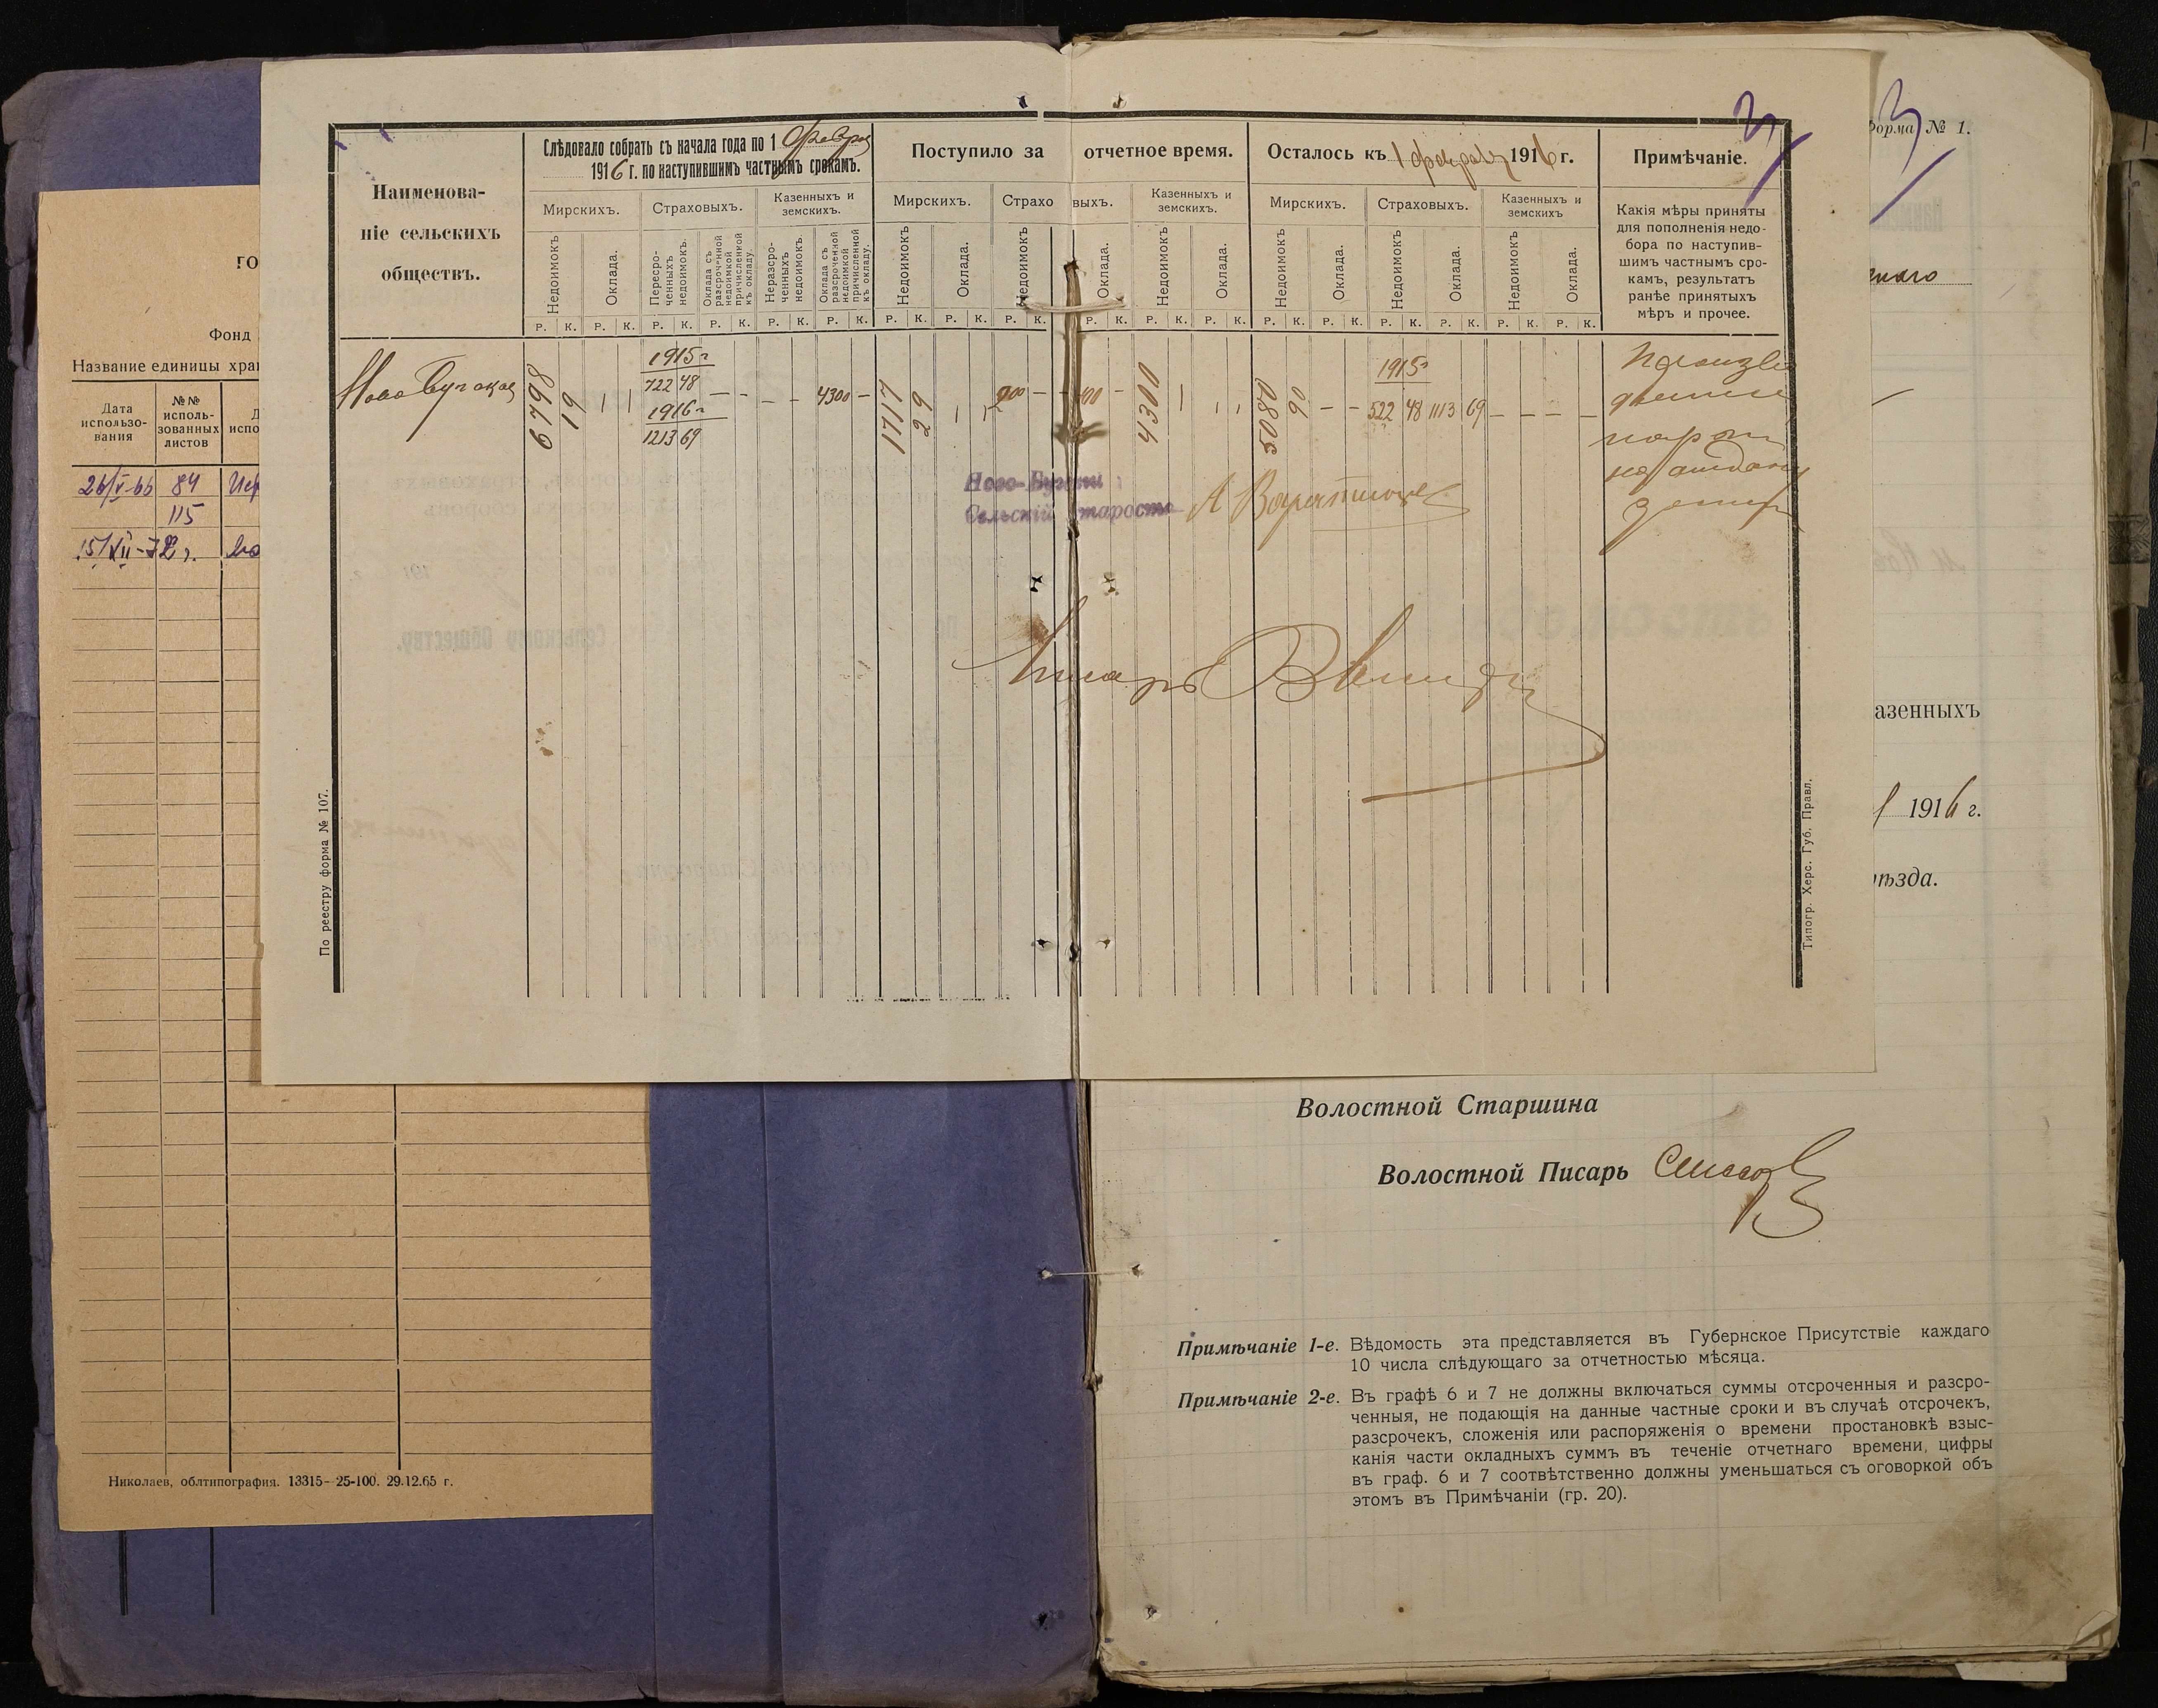 Слѣдовало собрать съ начала года по 1 Февра
1916 г. по наступившимъ частнымъ срокамъ.
Поступило за отчетное время.
Осталось къ 1 февраля 1916 г.
Примѣчаніе.
3
3
Форма № 1.
Наименова-
ніе сельскихъ
обществъ.
Мирскихъ. Страховыхъ. Казенныхъ и
земскихъ.
Мирскихъ. Страховыхъ. Казенныхъ и
земскихъ.
Мирскихъ. Страховыхъ. Казенныхъ и
земскихъ
Недоимокъ
Оклада.
Пересро-
ченныхъ
недоимокъ.
Оклада съ
разсроченной
недоимкой
причисленной
къ окладу.
Неразсро-
ченныхъ
недоимокъ.
Оклада съ
разсроченной
недоимкой
причисленной
къ окладу.
Недоимокъ
Оклада.
Недоимокъ
Оклада.
Недоимокъ
Оклада.
Недоимокъ
Оклада.
Недоимокъ
Оклада.
Недоимокъ
Оклада.
Какія мѣры приняты
для пополненія недо-
бора по наступив-
шимъ частнымъ сро-
камъ, результатъ
ранѣе принятыхъ
мѣръ и прочее.
Р. К. Р. К. Р. К. Р. К. Р. К. Р. К. Р. К. Р. К. Р. К. Р. К. Р. К. Р. К. Р. К. Р. К. Р. К. Р. К. Р. К. Р. К.
Ново Бугское
6798 19
1915 г
722 48
1916 г
1213 69
— — — — 4300 —
1717 29
200 — 100 —
4300
5080 90 — —
1915 г
522 48 1113 69 — — — —
Ново-Бугскій
Сельскій Староста
Писарь
По реестру форма № 107.
Типогр. Херс. Губ. Правл.
ГО
Фонд
Название единицы хра
Дата
использо-
вания
№№
исполь-
зованных
листов
26/V-66 84
115
15/XII-72 г.
Николаев, облтипография. 13315—25-100. 29.12.65 г.
азенныхъ
1916 г.
ѣзда.
Волостной Старшина
Волостной Писарь
Примѣчаніе 1-е. Вѣдомость эта представляется въ Губернское Присутствіе каждаго
10 числа слѣдующаго за отчетностью мѣсяца.
Примѣчаніе 2-е. Въ графѣ 6 и 7 не должны включаться суммы отсроченныя и разсро-
ченныя, не подающія на данные частные сроки и въ случаѣ отсрочекъ,
разсрочекъ, сложенія или распоряженія о времени простановкѣ взыс-
канія части окладныхъ суммъ въ теченіе отчетнаго времени, цифры
въ граф. 6 и 7 соотвѣтственно должны уменьшаться съ оговоркой объ
этомъ въ Примѣчаніи (гр. 20).